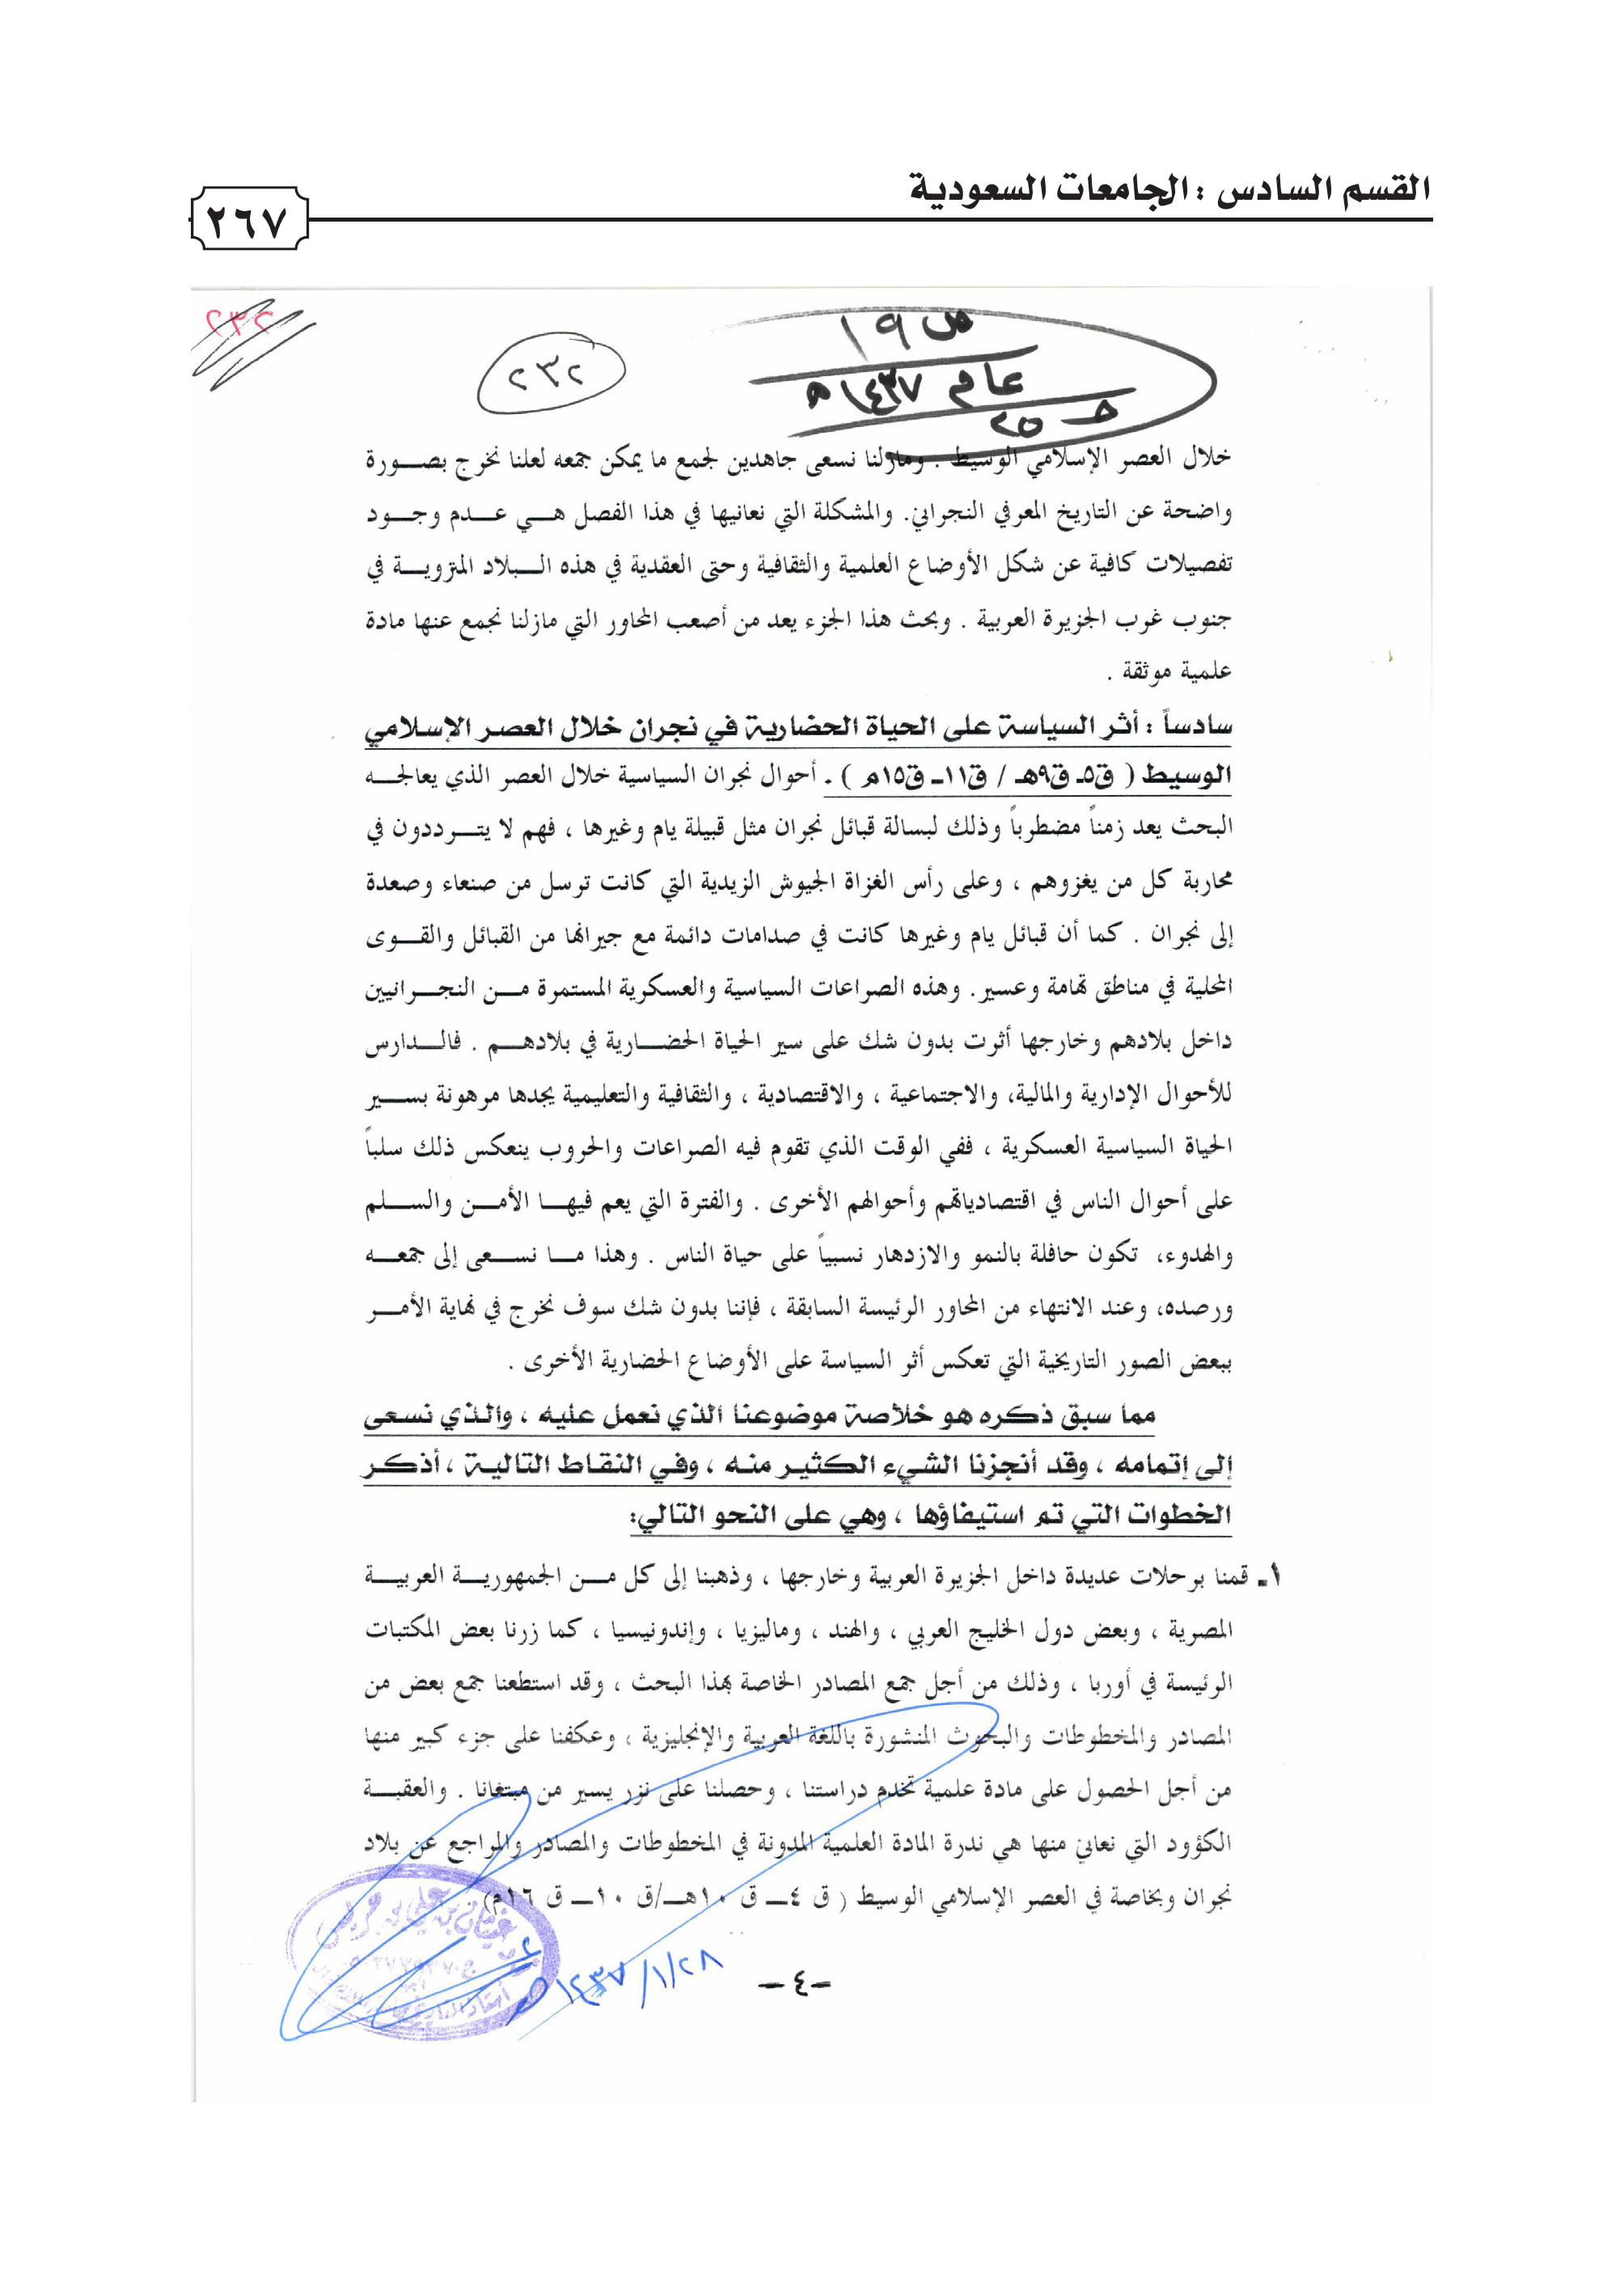 القسم السادس : الجامعات السعودية
٢٦٧
٢٣٢
ص ١٩
٢٣٢
عام ١٤٣٧هـ
حـ ٢٥
خلال العصر الإسلامي الوسيط . ومازلنا نسعى جاهدين لجمع ما يمكن جمعه لعلنا نخرج بصورة
واضحة عن التاريخ المعرفي النجراني. والمشكلة التي نعانيها في هذا الفصل هي عدم وجود
تفصيلات كافية عن شكل الأوضاع العلمية والثقافية وحتى العقدية في هذه البلاد المنزوية في
جنوب غرب الجزيرة العربية . وبحث هذا الجزء يعد من أصعب المحاور التي مازلنا نجمع عنها مادة
علمية موثقة .
سادساً : أثر السياسة على الحياة الحضارية في نجران خلال العصر الإسلامي
الوسيط ( ق٥ـ ق٩هـ / ق١١ـ ق١٥م ) . أحوال نجران السياسية خلال العصر الذي يعالجه
البحث يعد زمناً مضطرباً وذلك لبسالة قبائل نجران مثل قبيلة يام وغيرها ، فهم لا يترددون في
محاربة كل من يغزوهم ، وعلى رأس الغزاة الجيوش الزيدية التي كانت ترسل من صنعاء وصعدة
إلى نجران . كما أن قبائل يام وغيرها كانت في صدامات دائمة مع جيرانها من القبائل والقوى
المحلية في مناطق تهامة وعسير. وهذه الصراعات السياسية والعسكرية المستمرة من النجرانيين
داخل بلادهم وخارجها أثرت بدون شك على سير الحياة الحضارية في بلادهم . فالدارس
للأحوال الإدارية والمالية، والاجتماعية ، والاقتصادية ، والثقافية والتعليمية يجدها مرهونة بسير
الحياة السياسية العسكرية ، ففي الوقت الذي تقوم فيه الصراعات والحروب ينعكس ذلك سلباً
على أحوال الناس في اقتصادياتهم وأحوالهم الأخرى . والفترة التي يعم فيها الأمن والسلم
والهدوء، تكون حافلة بالنمو والازدهار نسبياً على حياة الناس . وهذا ما نسعى إلى جمعه
ورصده، وعند الانتهاء من المحاور الرئيسة السابقة ، فإننا بدون شك سوف نخرج في نهاية الأمر
ببعض الصور التاريخية التي تعكس أثر السياسة على الأوضاع الحضارية الأخرى .
مما سبق ذكره هو خلاصة موضوعنا الذي نعمل عليه ، والذي نسعى
إلى إتمامه ، وقد أنجزنا الشيء الكثير منه ، وفي النقاط التالية ، أذكر
الخطوات التي تم استيفاؤها ، وهي على النحو التالي:
١ـ قمنا برحلات عديدة داخل الجزيرة العربية وخارجها ، وذهبنا إلى كل من الجمهورية العربية
المصرية ، وبعض دول الخليج العربي ، والهند ، وماليزيا ، وإندونيسيا ، كما زرنا بعض المكتبات
الرئيسة في أوربا ، وذلك من أجل جمع المصادر الخاصة بهذا البحث ، وقد استطعنا جمع بعض من
المصادر والمخطوطات والبحوث المنشورة باللغة العربية والإنجليزية ، وعكفنا على جزء كبير منها
من أجل الحصول على مادة علمية تخدم دراستنا ، وحصلنا على نزر يسير من مبتغانا . والعقبة
الكؤود التي نعاني منها هي ندرة المادة العلمية المدونة في المخطوطات والمصادر والمراجع عن بلاد
نجران وبخاصة في العصر الإسلامي الوسيط ( ق ٤ـ ق ١٠هـ/ق ١٠ـ ق ١٦م) .
غيثان بن علي بن جريس
١٤٣٧/١/٢٨هـ
-٤-